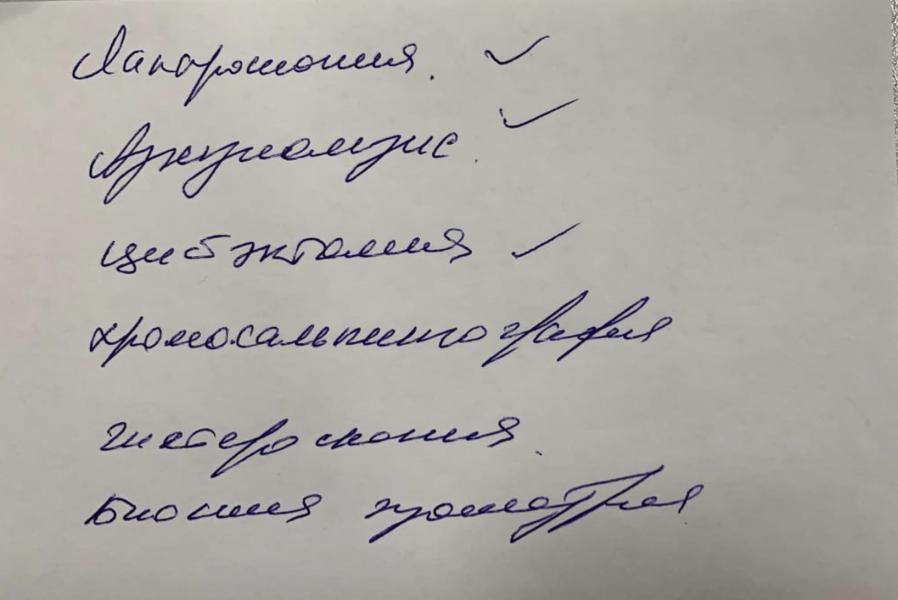 Лапоротомия. ✓
Аднеолизис. ✓
цистэктомия ✓
хромосальпингография
гистероскопия
Биопсия эндометрия